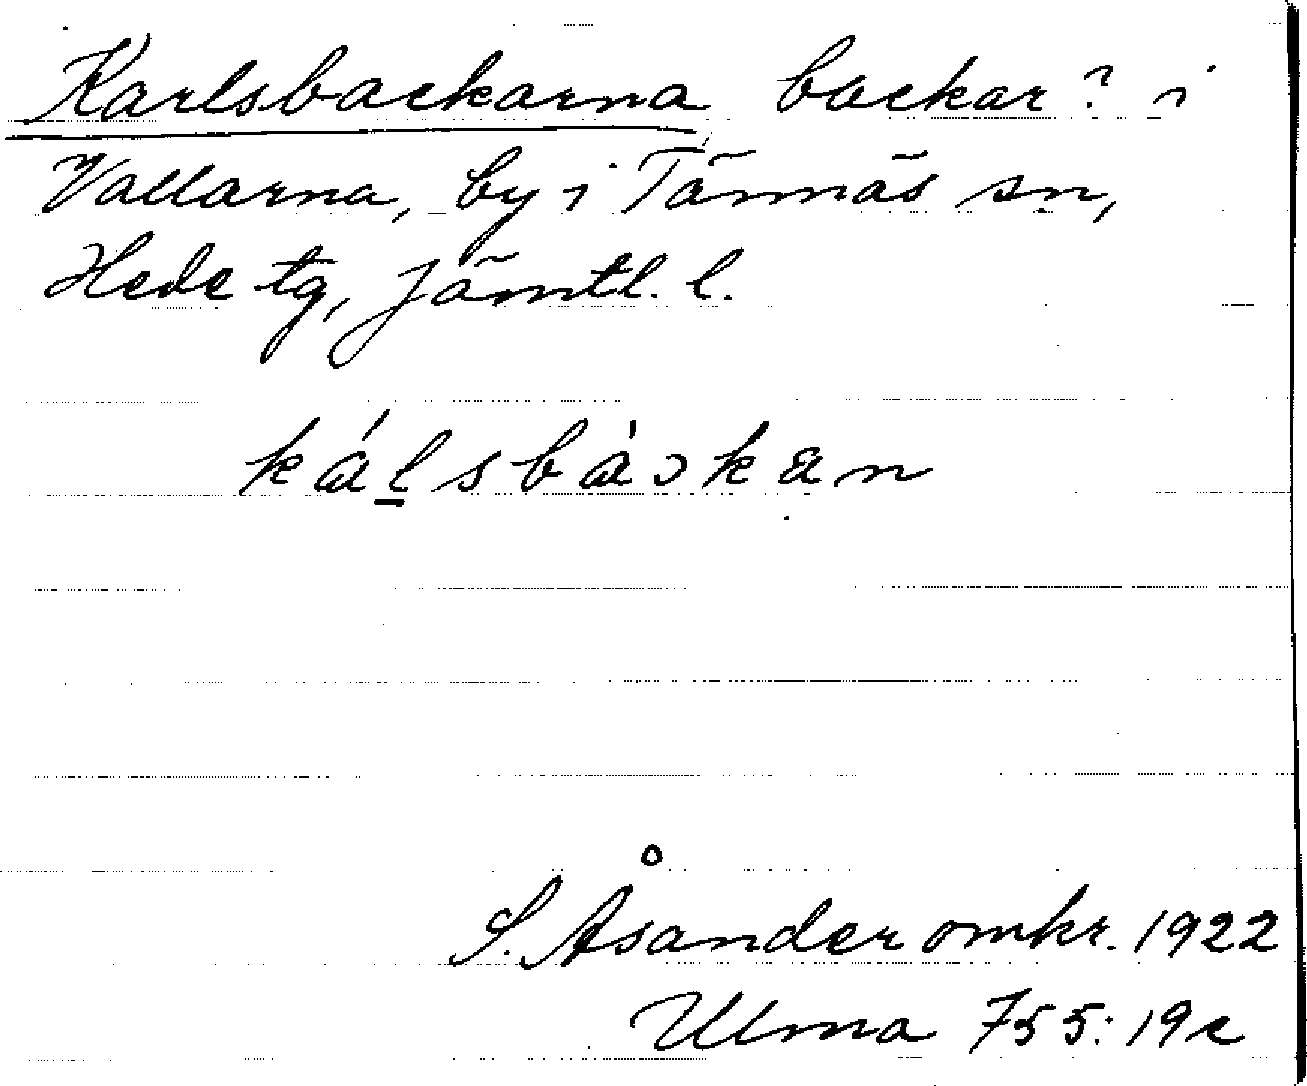 Karlsbackarna, backar? i
Vallarna, by i Tännäs sn,
Hede tg, Jämtl. l.
kál̠sbàɔkan
S. Åsander omkr. 1922
Ulma 755:19c